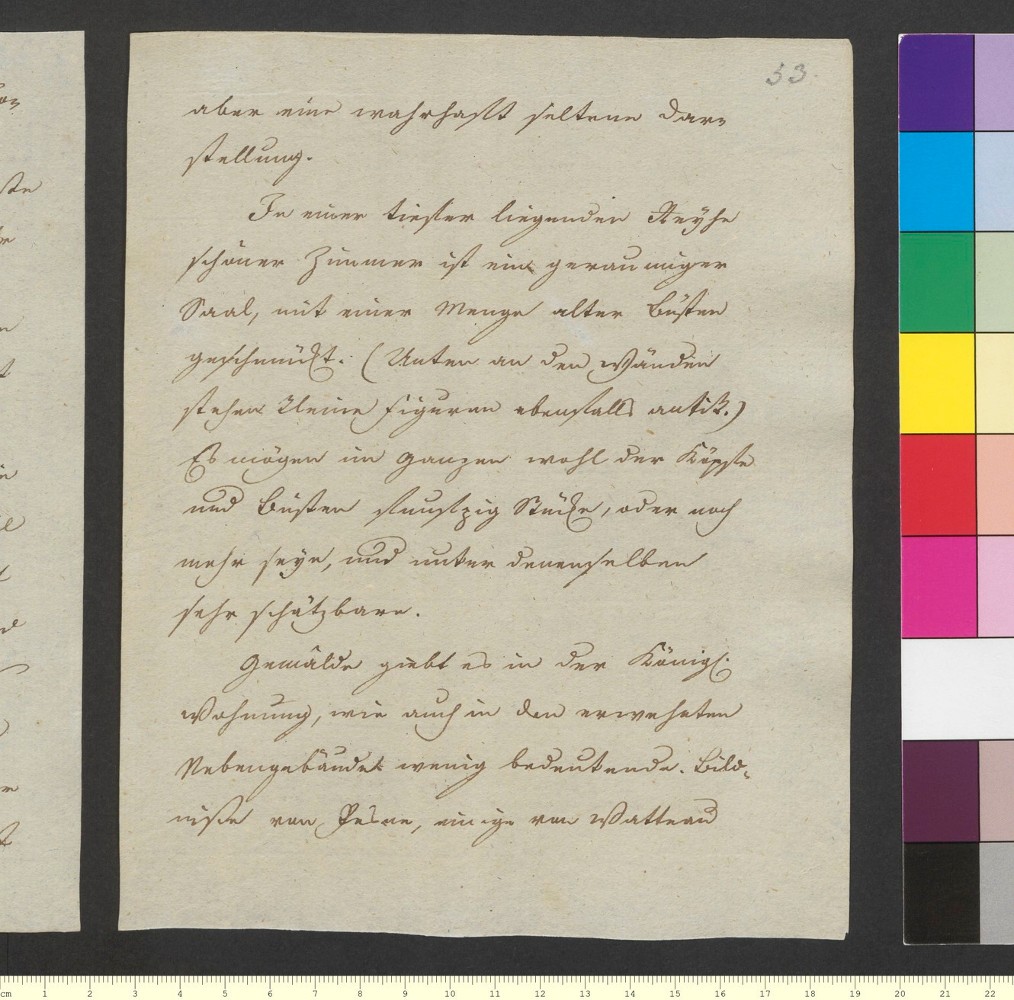 33.
aber eine wahrhafft seltene Dar-
stellung.
In einer tieffer liegenden Reyhe
schöner Zimmer ist ein geraumiger
Saal, mit einer Menge alter Büsten
geschmückt. (Unten an den Wänden
stehen kleine Figuren ebenfalls antik.)
Es mögen im Ganzen wohl der Köpffe
und Büsten funffzig Stücke, oder noch
mehr seyn, und unter denenselben
sehr schätzbare.
Gemälde giebt es in der Königl:
Wohnung, wie auch in den erwehnten
Nebengebäude wenig bedeutende. Bild-
niße von Pesne, einige von Watteau